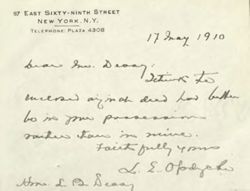 117 EAST SIXTY-NINTH STREET
NEW YORK, N.Y.
TELEPHONE: PLAZA 4308
17 May 1910
Dear Mr. Deasy,
I think the
enclosed deed had better
be in your possession
rather than in mine.
Faithfully yours
L. E. Opdycke
Hon. L B Deasy